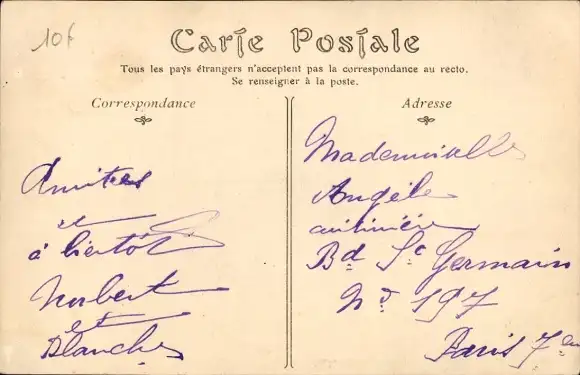 10f
Carte Postale
Tous les pays étrangers n'acceptent pas la correspondance au recto.
Se renseigner à la poste.
Correspondance
Amitiés
et
à bientôt
Norbert
et
Blanche
Adresse
Mademoiselle
Angèle
cuisinière
Bd St Germain
No 197
Paris 7em